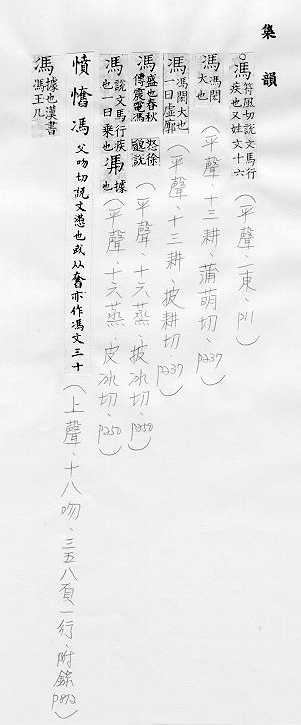 集韻
○馮符風切說文馬行疾也又姓文十六(平聲.一東.p11)
馮馮閎大也(平聲.十三耕.蒲萌切.p237)
馮馮閎大也一曰虛廓(平聲.十三耕.披耕切.p237)
馮盛也春秋傳震電馮怒徐邈說(平聲.十六蒸.披冰切.p250)
馮說文馬行疾也一曰乘也 凭據也(平聲.十六蒸.皮冰切.p250)
憤 馮父吻切說文懣也或从奮亦作馮文三十(上聲.十八吻.三五八頁一行.附錄p892)
馮據也漢書馮玉几